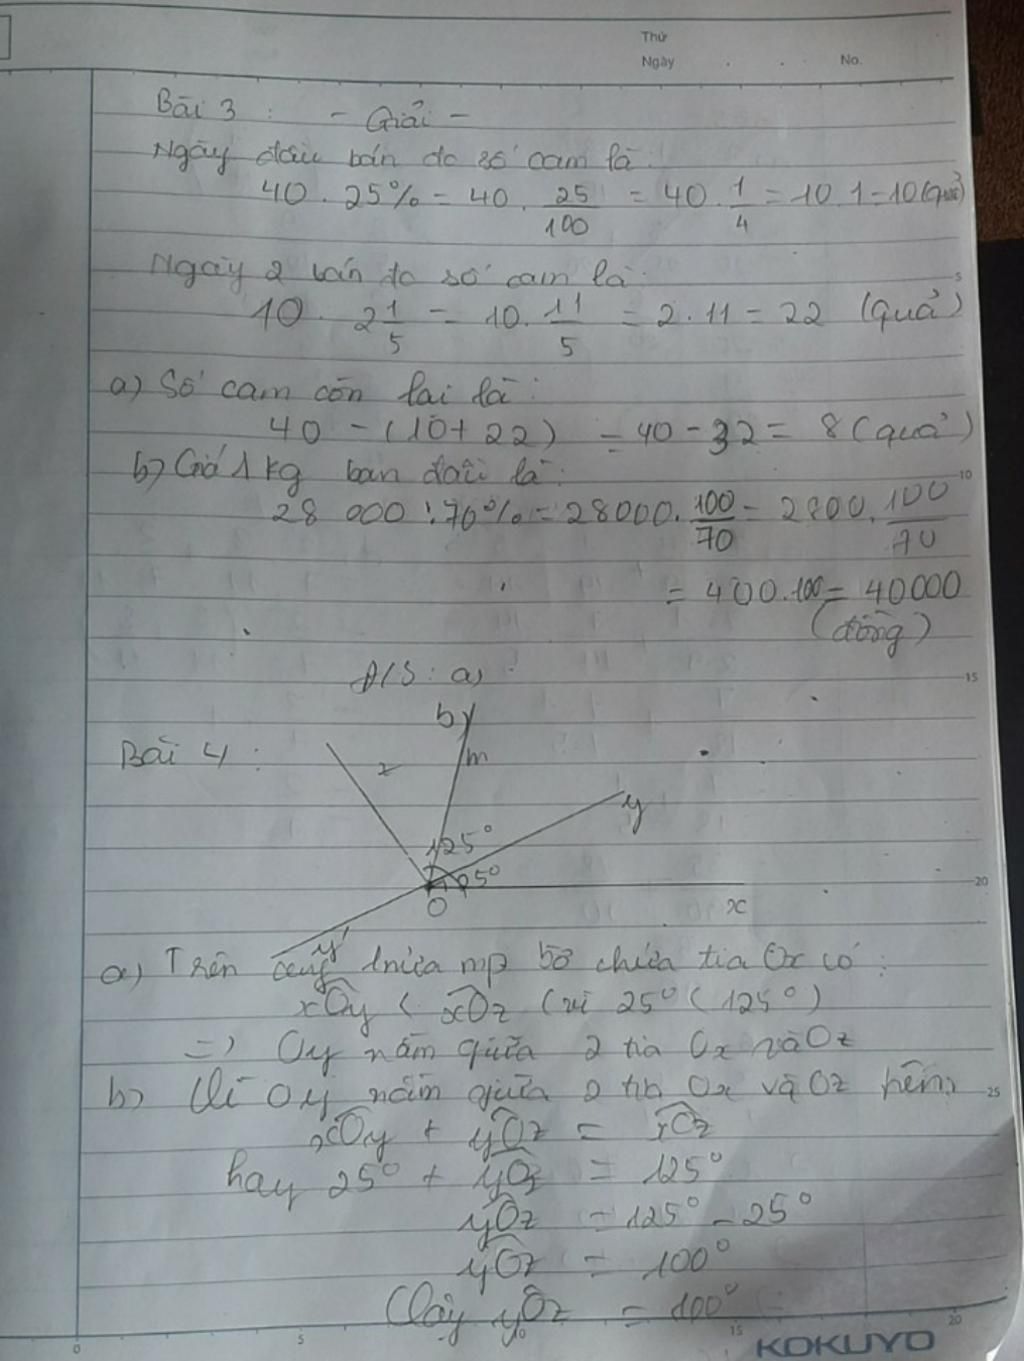 Thứ
Ngày . . . No.
Bài 3 : - Giải -
Ngày đầu bán đc số cam là:
40 . 25% = 40 . 25/100 = 40 . 1/4 = 10 . 1 = 10 (quả)
Ngày 2 bán đc số cam là:
10 . 2 1/5 = 10 . 11/5 = 2 . 11 = 22 (quả)
5
a) Số cam còn lại là:
40 - (10 + 22) = 40 - 32 = 8 (quả)
b) Giá 1 kg ban đầu là:
10
28 000 : 70% = 28000 . 100/70 = 2800 . 100/70
= 400 . 100 = 40000
(đồng)
Đ/S : a)
15
b)
Bài 4 :
z
m
y
125°
25°
20
O
x
y'
a) Trên cùng 1 nửa mp bờ chứa tia Ox có :
xOy < xOz (vì 25° < 125°)
=> Oy nằm giữa 2 tia Ox và Oz
b) Vì Oy nằm giữa 2 tia Ox và Oz nên:
25
xOy + yOz = xOz
hay 25° + yOz = 125°
yOz = 125° - 25°
yOz = 100°
Vậy yOz = 100°
0 5 10 15 20
KOKUYO